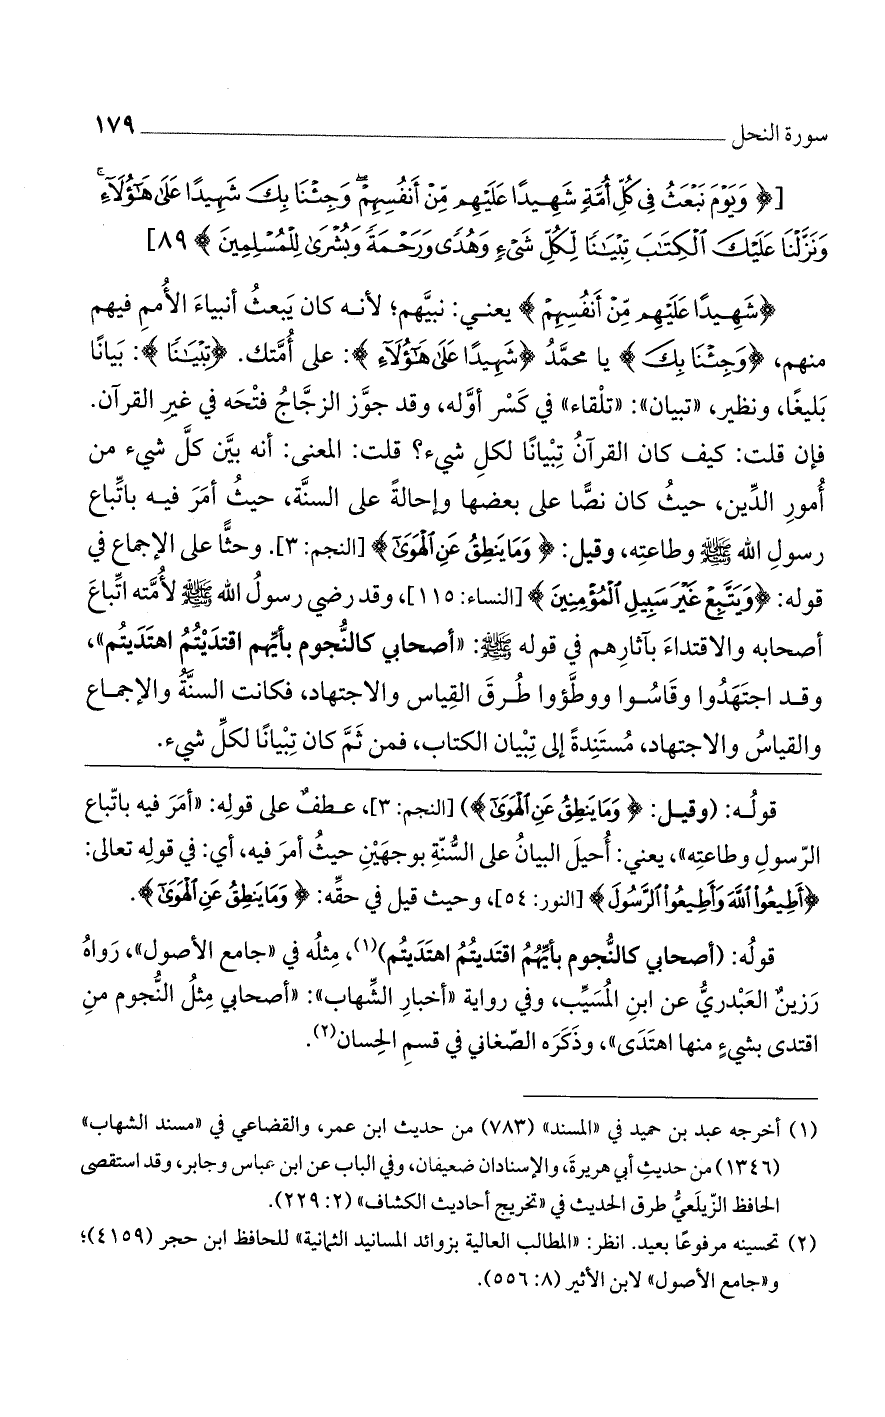 سورة النحل ١٧٩
[﴿ وَيَوْمَ نَبْعَثُ فِي كُلِّ أُمَّةٍ شَهِيدًا عَلَيْهِم مِّنْ أَنفُسِهِمْ ۖ وَجِئْنَا بِكَ شَهِيدًا عَلَىٰ هَٰؤُلَآءِ ۚ
وَنَزَّلْنَا عَلَيْكَ الْكِتَٰبَ تِبْيَٰنًا لِّكُلِّ شَيْءٍ وَهُدًى وَرَحْمَةً وَبُشْرَىٰ لِلْمُسْلِمِينَ ﴾ ٨٩]
﴿شَهِيدًا عَلَيْهِم مِّنْ أَنفُسِهِمْ ﴾ يعني: نبيَّهم؛ لأنه كان يَبعثُ أنبياءَ الأُممِ فيهم
منهم، ﴿وَجِئْنَا بِكَ ﴾ يا محمَّدُ ﴿شَهِيدًا عَلَىٰ هَٰؤُلَآءِ ﴾: على أُمَّتك. ﴿تِبْيَٰنًا ﴾: بَيانًا
بَليغًا، ونظير، «تبيان»: «تلْقاء» في كَسْر أوَّله، وقد جوَّز الزجَّاجُ فتْحَه في غيرِ القرآن.
فإن قلت: كيف كان القرآنُ تِبْيانًا لكلِ شيء؟ قلت: المعنى: أنه بيَّن كلَّ شيء من
أُمورِ الدِّين، حيثُ كان نصًّا على بعضها وإحالةً على السنَّة، حيثُ أمَرَ فيه باتِّباع
رسولِ الله ﷺ وطاعتِه، وقيل: ﴿ وَمَا يَنطِقُ عَنِ الْهَوَىٰٓ ﴾ [النجم: ٣]. وحثًّا على الإجماع في
قوله: ﴿وَيَتَّبِعْ غَيْرَ سَبِيلِ الْمُؤْمِنِينَ ﴾ [النساء: ١١٥]، وقد رضي رسولُ الله ﷺ لأُمَّته اتِّباعَ
أصحابه والاقتداءَ بآثارِهم في قوله ﷺ: «أصحابي كالنُّجوم بأيِّهم اقتدَيْتُمُ اهتَدَيتُم»،
وقد اجتَهَدُوا وقَاسُوا ووطَّؤوا طُرقَ القِياس والاجتهاد، فكانت السنَّةُ والإجماع
والقياسُ والاجتهاد، مُستَنِدةً إلى تِبْيان الكتاب، فمن ثَمَّ كان تِبْيانًا لكلِّ شيء.
قولُه: (وقيل: ﴿ وَمَا يَنطِقُ عَنِ الْهَوَىٰٓ ﴾) [النجم: ٣]، عطفٌ على قولِه: «أمَرَ فيه باتّباع
الرّسولِ وطاعتِه»، يعني: أُحيلَ البيانُ على السُّنّةِ بوجهَيْنِ حيثُ أمرَ فيه، أي: في قولِه تعالى:
﴿أَطِيعُوا۟ اللَّهَ وَأَطِيعُوا۟ الرَّسُولَ ﴾ [النور: ٥٤]، وحيث قيل في حقِّه: ﴿ وَمَا يَنطِقُ عَنِ الْهَوَىٰٓ ﴾.
قولُه: (أصحابي كالنُّجوم بأيِّهُمُ اقتَديتُمُ اهتَدَيتُم)(١)، مِثلُه في «جامع الأصول»، رَواهُ
رَزينٌ العَبْدريُّ عن ابنِ المُسَيِّب، وفي رواية «أخبارِ الشِّهاب»: «أصحابي مِثلُ النُّجوم منِ
اقتدى بشيءٍ منها اهتَدَى»، وذَكَرَه الصّغاني في قسمِ الحِسان(٢).
(١) أخرجه عبد بن حميد في «المسند» (٧٨٣) من حديث ابن عمر، والقضاعي في «مسند الشهاب»
(١٣٤٦) من حديثِ أبي هريرةَ، والإسنادان ضعيفان، وفي الباب عن ابن عباس وجابر، وقد استقصى
الحافظ الزّيلَعيُّ طرق الحديث في «تخريج أحاديث الكشاف» (٢: ٢٢٩).
(٢) تحسينه مرفوعًا بعيد. انظر: «المطالب العالية بزوائد المسانيد الثمانية» للحافظ ابن حجر (٤١٥٩)؛
و«جامع الأصول» لابن الأثير (٨: ٥٥٦).